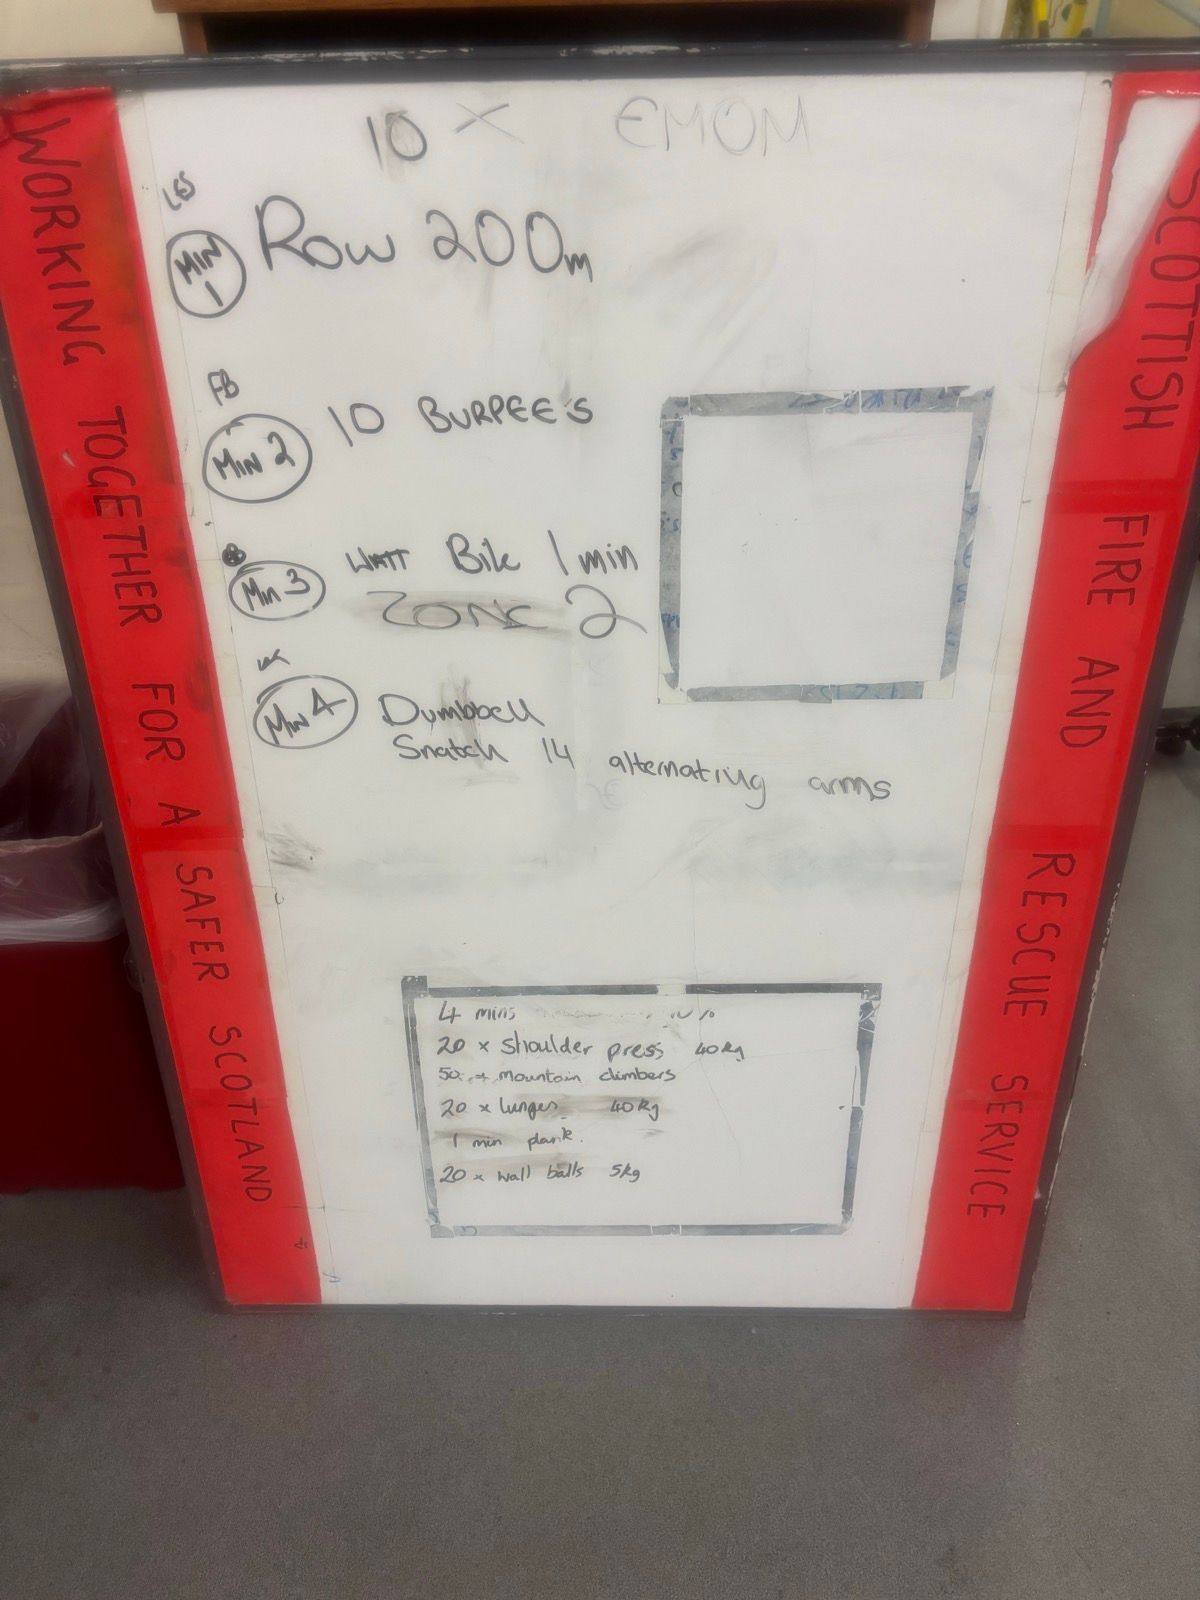 10 × EMOM
LES
MIN 1 Row 200m
FB
MIN 2 10 BURPEE'S
Min 3 WATT Bike 1 min
ZONE 2
Min 4 Dumbbell
Snatch 14 alternating arms
4 mins
20 × shoulder press 40kg
50 × mountain climbers
20 × lunges 40kg
1 min plank.
20 × wall balls 5kg
WORKING TOGETHER FOR A SAFER SCOTLAND
SCOTTISH FIRE AND RESCUE SERVICE